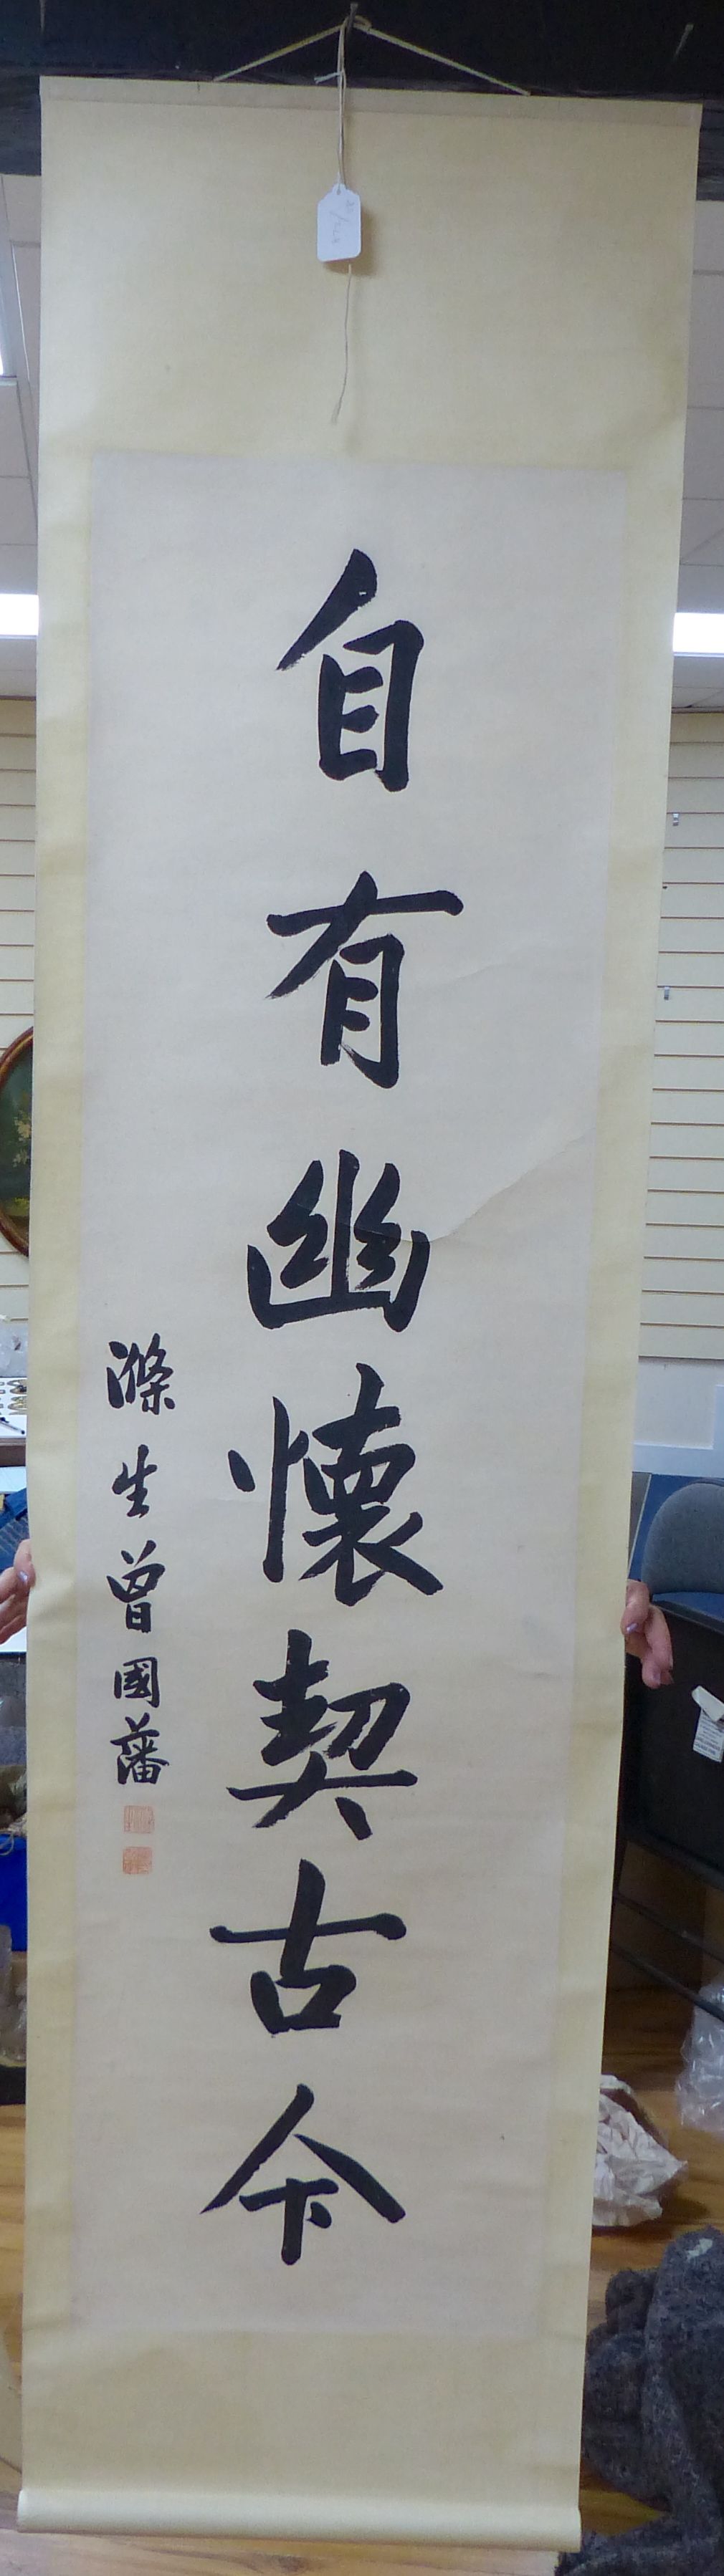 自有幽懷契古今
滌生曾國藩